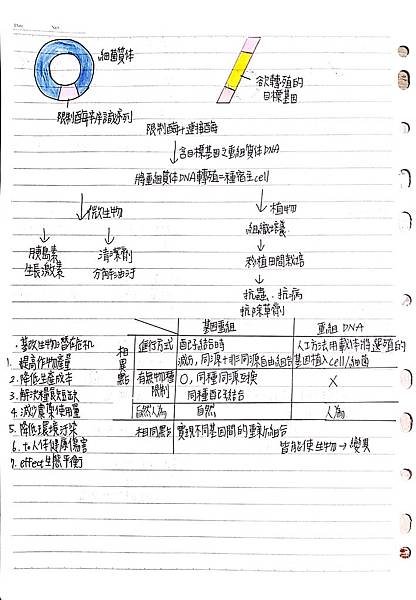 細菌質体
欲轉殖的
目標基因
限制酶辨識序列
限制酶+連接酶
含目標基因之重組質体DNA
將重組質体DNA轉殖=種宿主cell
微生物
植物
組織培養
胰島素
生長激素
清潔劑
分解油汙
移植田間栽培
抗蟲、抗病
抗除草劑
基因重組
重組DNA
基改生物潛在危机
1. 提高作物產量
2. 降低生產成本
3. 解決糧食短缺
4. 減少農藥使用量
5. 降低環境汙染
6. to人体健康傷害
7. effect生態平衡
相異點
進行方式
配子結合時
減仍,同源+非同源自由組合
人工方法用載体將選殖的
基因植入cell/細菌
有無物種
限制
O,同種同源互換
同種配子結合
X
自然人為
自然
人為
相同點
實現不同基因間的重新組合
皆能使生物→變異